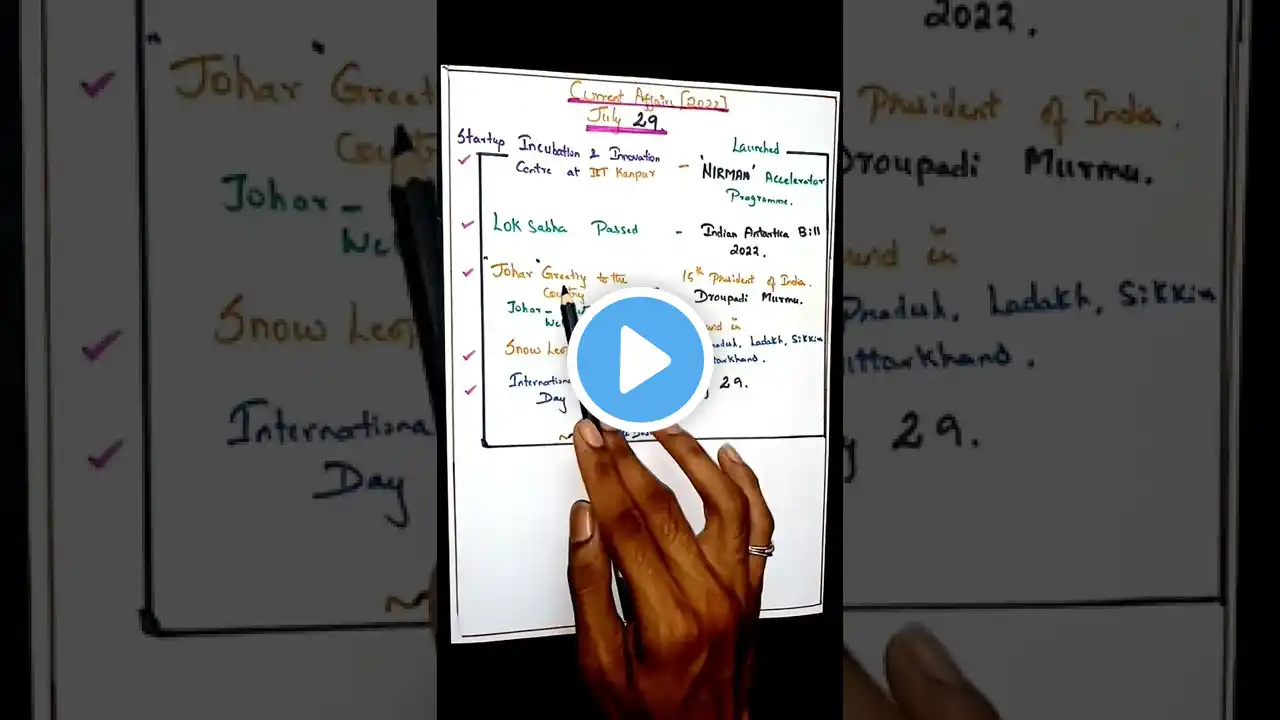 Current Affairs [2022]
July 29.
Startup Incubation & Innovation
Centre at IIT Kanpur
- Launched
'NIRMAN' Accelerator
Programme.
Lok Sabha Passed - Indian Antartica Bill
2022.
"Johar" Greetry to the
Country
15th President of India.
Droupadi Murmu.
Johar -
We
Snow Leo
und in
Pradesh, Ladakh, Sikkim
Uttarkhand.
International
Day
29.